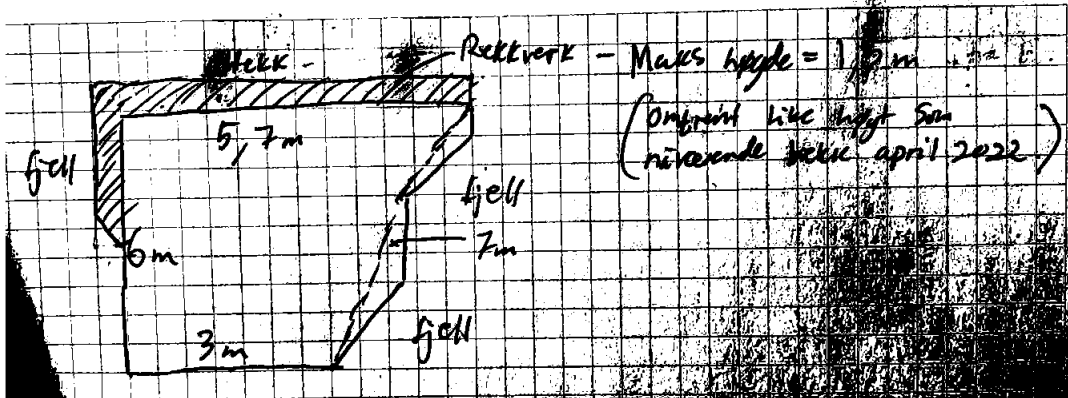 Hekk - Rekkverk - Maks høgde = 1, m
5,7m
(Omtrent like høgt som
nåværende hekk april 2022)
fjell
fjell
7m
6m
fjell
3m